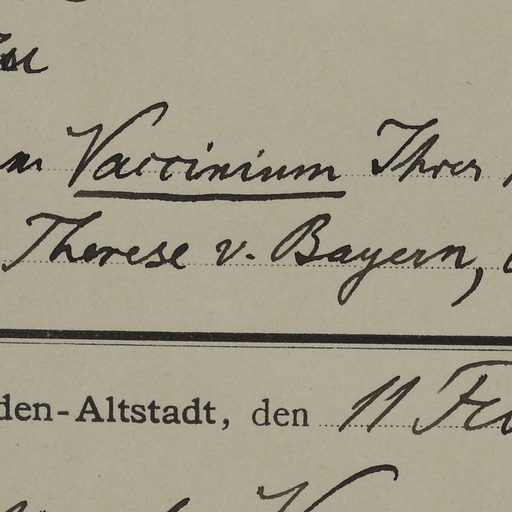 Vaccinium Ihrer
Therese v. Bayern,
den-Altstadt, den 11 Fe